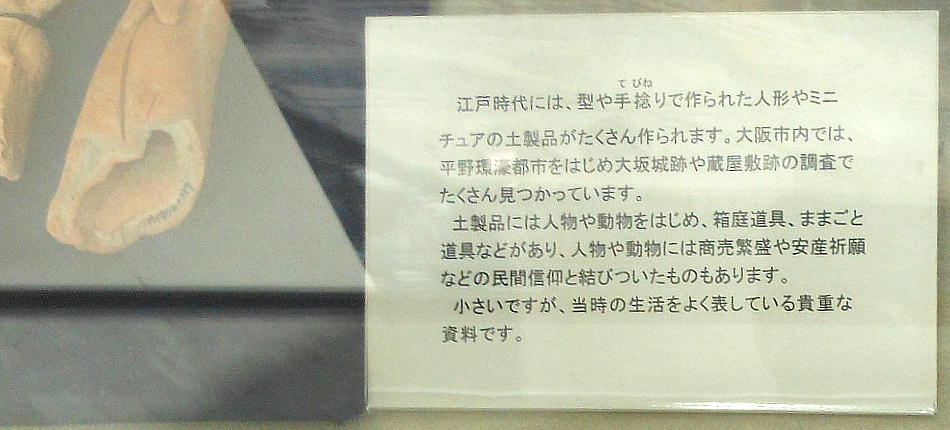 てびね
江戸時代には、型や手捻りで作られた人形やミニ
チュアの土製品がたくさん作られます。大阪市内では、
平野環濠都市をはじめ大坂城跡や蔵屋敷跡の調査で
たくさん見つかっています。
土製品には人物や動物をはじめ、箱庭道具、ままごと
道具などがあり、人物や動物には商売繁盛や安産祈願
などの民間信仰と結びついたものもあります。
小さいですが、当時の生活をよく表している貴重な
資料です。